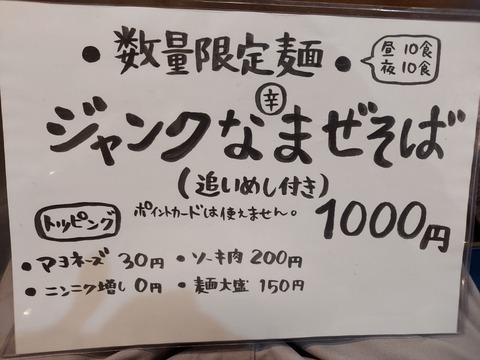 • 数量限定麺 •
昼10食
夜10食
辛
ジャンクなまぜそば
(追いめし付き)
ポイントカードは使えません。
1000円
トッピング
• マヨネーズ 30円 • ソーキ肉 200円
• ニンニク増し 0円 • 麺大盛 150円